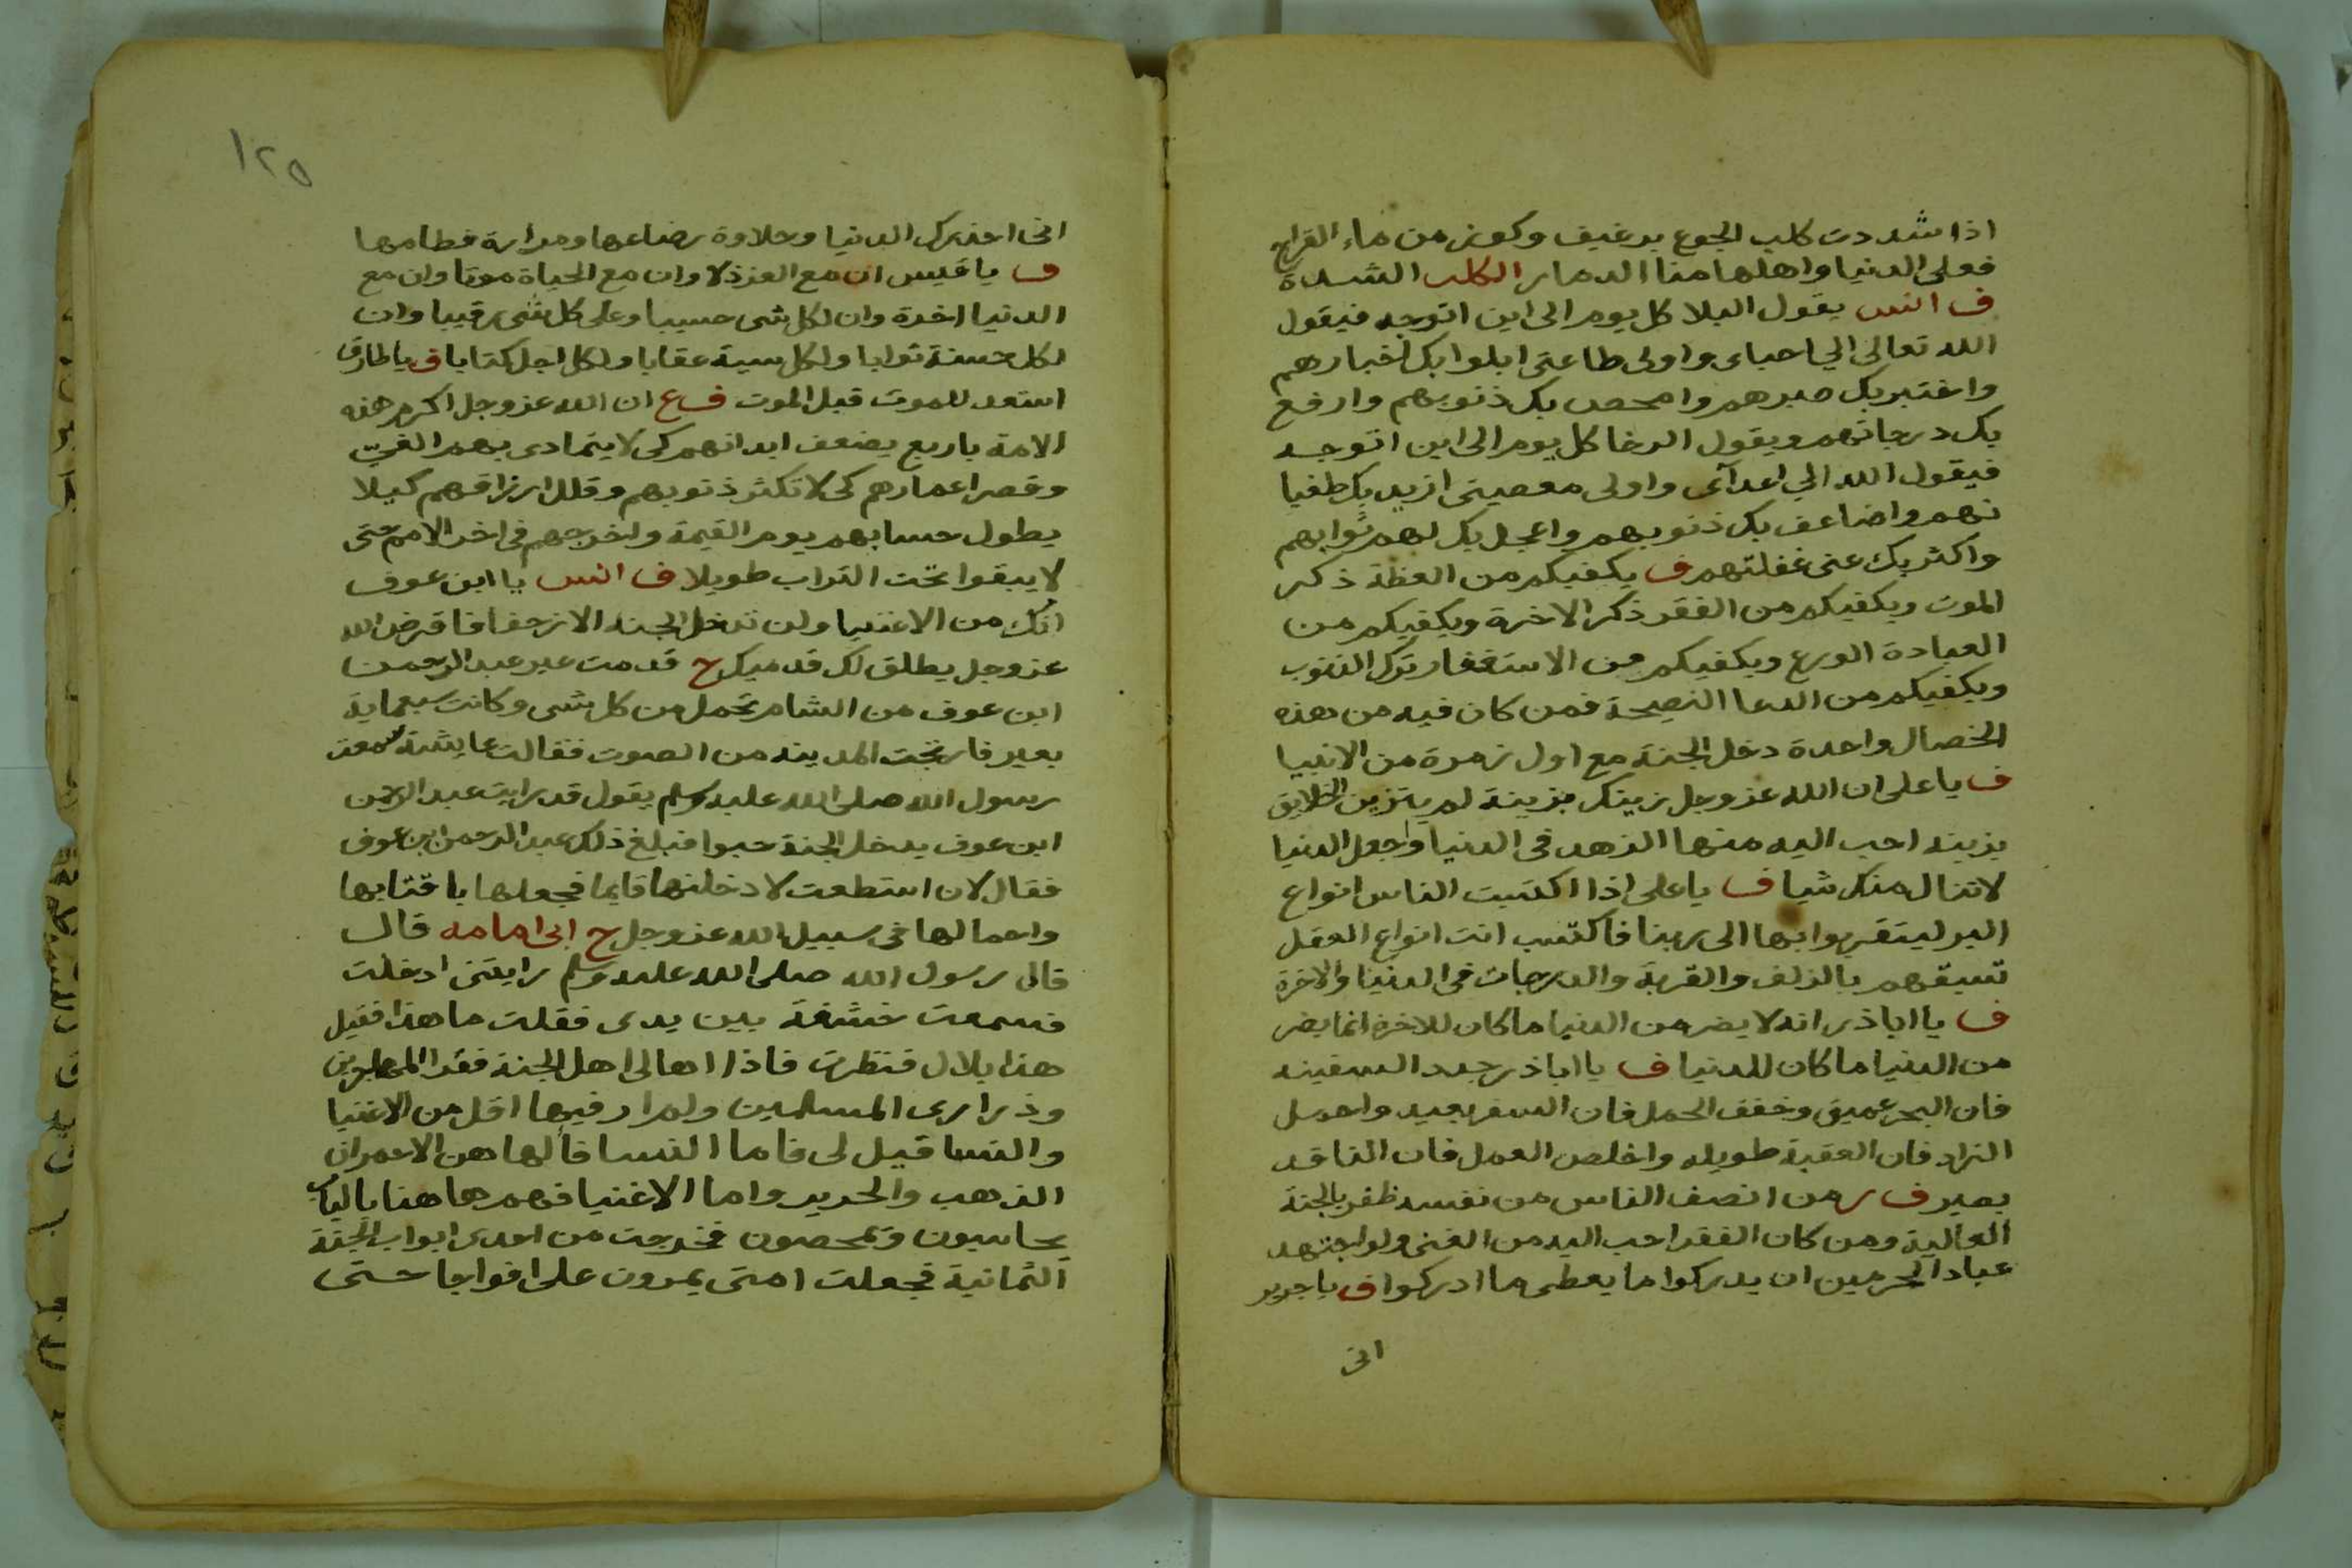 اذا شددت كلب الجوع برغيف وكوز من ماء القراح
فعلى الدنيا واهلها منا الدمار الكلب الشدة
ف انس يقول البلا كل يوم الى اين اتوجه فيقول
الله تعالى الي احباى واولى طاعتى ابلوا بك اخبارهم
واختبر بك صبرهم وامحص بك ذنوبهم وارفع
بك درجاتهم ويقول الرخا كل يوم الى اين اتوجه
فيقول الله الي اعدآى واولى معصيتى ازيد بك طغيا
نهم واضاعف بك ذنوبهم واعجل بك لهم ثوابهم
واكثر بك عنى غفلتهم ف يكفيكم من العظة ذكر
الموت ويكفيكم من الفقر ذكر الاخرة ويكفيكم من
العبادة الورع ويكفيكم من الاستغفار ترك الذنوب
ويكفيكم من الدعا النصيحة فمن كان فيه من هذه
الخصال واحدة دخل الجنة مع اول زمرة من الانبيا
ف يا على ان الله عز وجل زينك بزينة لم يتزين الخلايق
بزينه احب اليه منها الزهد فى الدنيا وجعل الدنيا
لا تنال منك شيا ف يا على اذا اكتسبت الناس انواع
البر ليتقربوا بها الى ربنا فاكتسب انت انواع العقل
تسبقهم بالزلف والقربة والدرجات فى الدنيا والاخرة
ف يا ابا ذر انه لا يضر من الدنيا ما كان للاخرة انما يضر
من الدنيا ما كان للدنيا ف يا ابا ذر جدد السفينه
فان البحر عميق وخفف الحمل فان السفر بعيد واحمل
الزاد فان العقبة طويله واخلص العمل فان الناقد
بصير ف ر من انصف الناس من نفسه ظفر بالجنة
العالية ومن كان الفقر احب اليه من الغنى ولو اجتهد
عباد الحرمين ان يدركوا ما يعطى ما ادركوا ف يا جرير
انى
١٢٥
انى احذرك الدنيا وحلاوة رضاعها ومرارة فطامها
ف يا قيس ان مع العز ذلا وان مع الحياة موتا وان مع
الدنيا اخرة وان لكل شى حسيبا وعلى كل شى رقيبا وان
لكل حسنة ثوابا ولكل سية عقابا ولكل اجل كتابا ف يا طارق
استعد للموت قبل الموت ف ع ان الله عز وجل اكرم هذه
الامة باربع يضعف ابدانهم كى لا يتمادى بهم الغيّ
وقصر اعمارهم كى لا تكثر ذنوبهم وقلل ارزاقهم كيلا
يطول حسابهم يوم القيمة واخرجهم فى اخر الامم حتى
لا يبقوا تحت التراب طويلا ف انس يا ابن عوف
انك من الاغنيا ولن تدخل الجنه الا زحفا فاقرض الله
عز وجل يطلق لك قدميك ح قدمت عير عبد الرحمن
ابن عوف من الشام تحمل من كل شى وكانت سبعماية
بعير فارتجت المدينه من الصوت فقالت عايشة سمعت
رسول الله صلى الله عليه وسلم يقول قد رايت عبد الرحمن
ابن عوف يدخل الجنة حبوا فبلغ ذلك عبد الرحمن ابن عوف
فقال لان استطعت لادخلنها قايما فجعلها باقتابها
واحمالها فى سبيل الله عز وجل ح ابى امامه قال
قال رسول الله صلى الله عليه وسلم رايتنى ادخلت
فسمعت خشفة بين يدى فقلت ما هذا فقيل
هذا بلال فنظرت فاذا اهالى اهل الجنة فقرا المهاجرين
وذرارى المسلمين ولم ار فيها اقل من الاغنيا
والنسا قيل لى فاما النسا فألهاهن الاحمران
الذهب والحرير واما الاغنيا فهم هاهنا بالباب
يحاسبون ويمحصون فخرجت من احدى ابواب الجنة
الثمانية فجعلت امتى يمرون على افواجا حتى